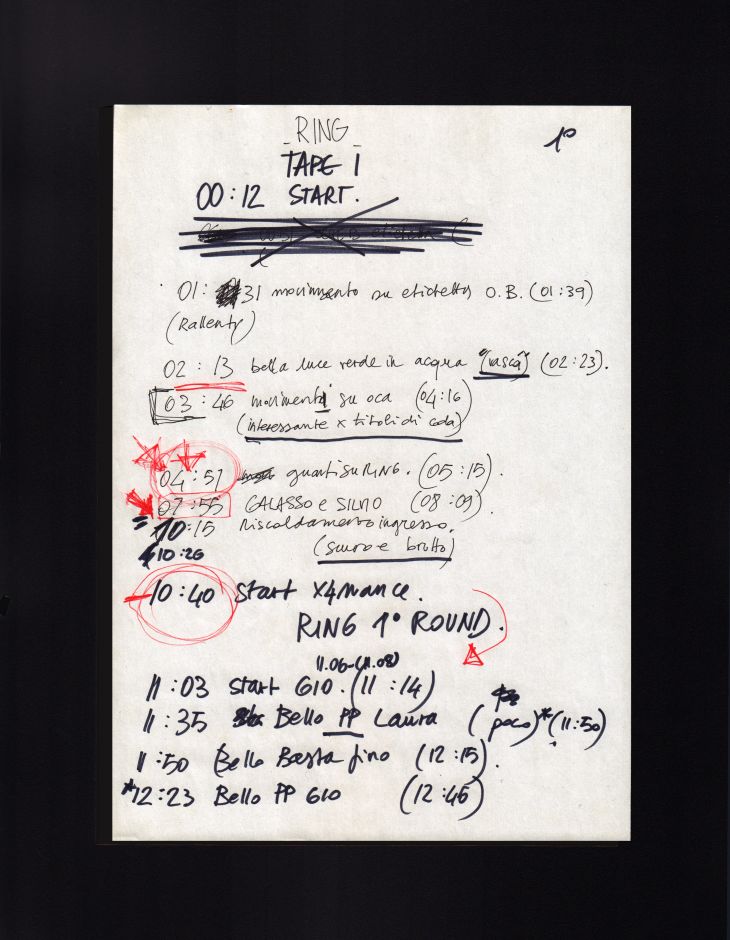 RING
1°
TAPE 1
00:12 START.
01: 31 movimento su etichetta O.B. (01:39)
(Rallenty)
02:13 bella luce verde in acqua "(vasca)" (02:23).
03:46 movimenti su oca (04:16)
(interessante x titoli di coda)
04:51 guanti su RING. (05:15).
07:55 GALASSO e SILVIO (08:09).
10:15 Riscaldamento ingresso.
10:26 (scuro e brutto)
10:40 start X4mance.
RING 1° ROUND.
11.06-(11.08)
11:03 start GIO. (11:14)
11:35 Bello PP Laura (poco)*(11:50)
11:50 Bello Basta fino (12:15).
*12:23 Bello PP GIO (12:46)